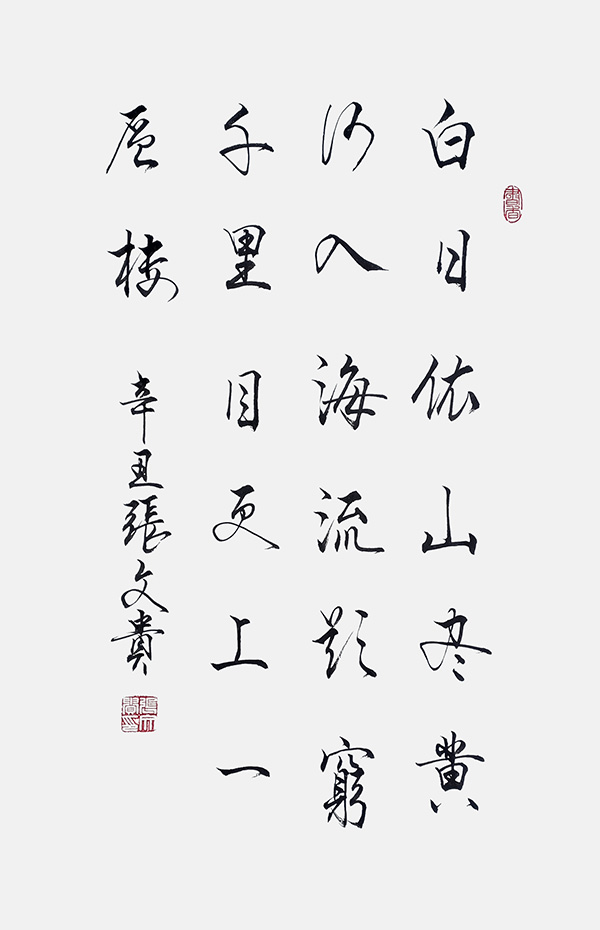 白日依山尽黄
河入海流欲穷
千里目更上一
层楼
辛丑張文貴